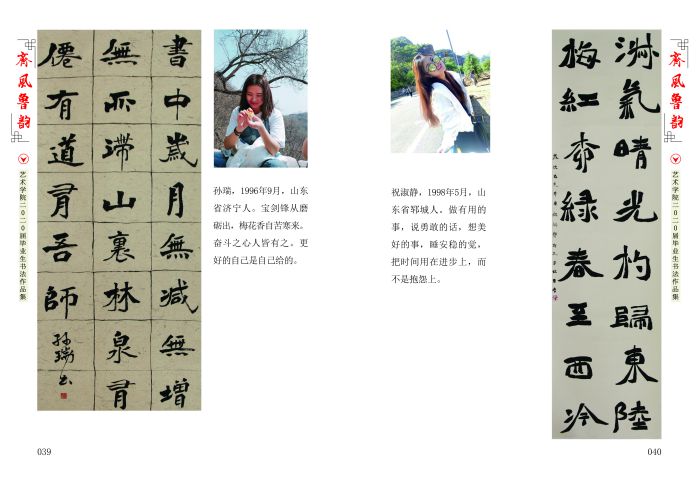 齐风鲁韵
艺术学院二〇二〇届毕业生书法作品集
書中歲月無減無增
無所滯山裏林泉有
僊有道有吾師
孙瑞书
孙瑞，1996年9月，山东
省济宁人。宝剑锋从磨
砺出，梅花香自苦寒来。
奋斗之心人皆有之。更
好的自己是自己给的。
039
祝淑静，1998年5月，山
东省郓城人。做有用的
事，说勇敢的话，想美
好的事，睡安稳的觉，
把时间用在进步上，而
不是抱怨上。
淑氣晴光杓歸東陸
梅紅柳綠春至西泠
齐风鲁韵
艺术学院二〇二〇届毕业生书法作品集
040